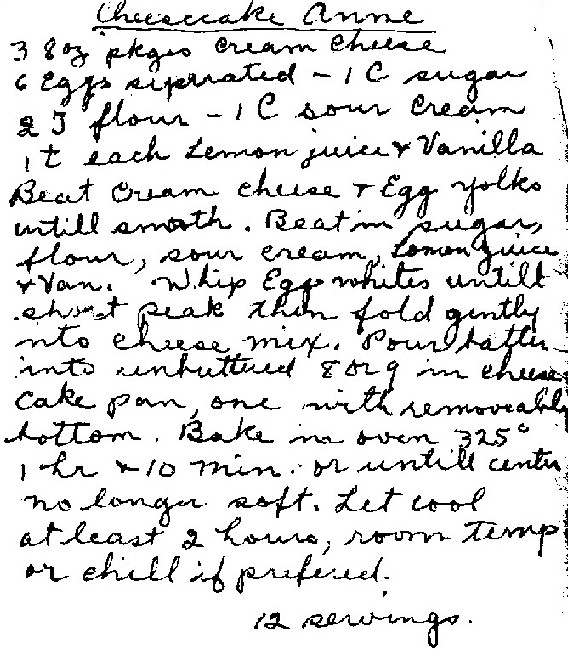 Cheesecake Anne
3 8oz pkges cream cheese
6 Eggs seperated - 1 C sugar
2 T flour - 1 C sour cream
1 t each Lemon juice & Vanilla
Beat Cream cheese & Egg yolks
untill smooth. Beat in sugar,
flour, sour cream, Lemon juice
& Van. Whip Egg whites untill
short peak then fold gently
into cheese mix. Pour batter
into unbuttered 8 or 9 in cheese
cake pan, one with removeable
bottom. Bake in oven 325°
1 hr & 10 min. or untill center
no longer soft. Let cool
at least 2 hours, room temp
or chill if prefered.
12 servings.